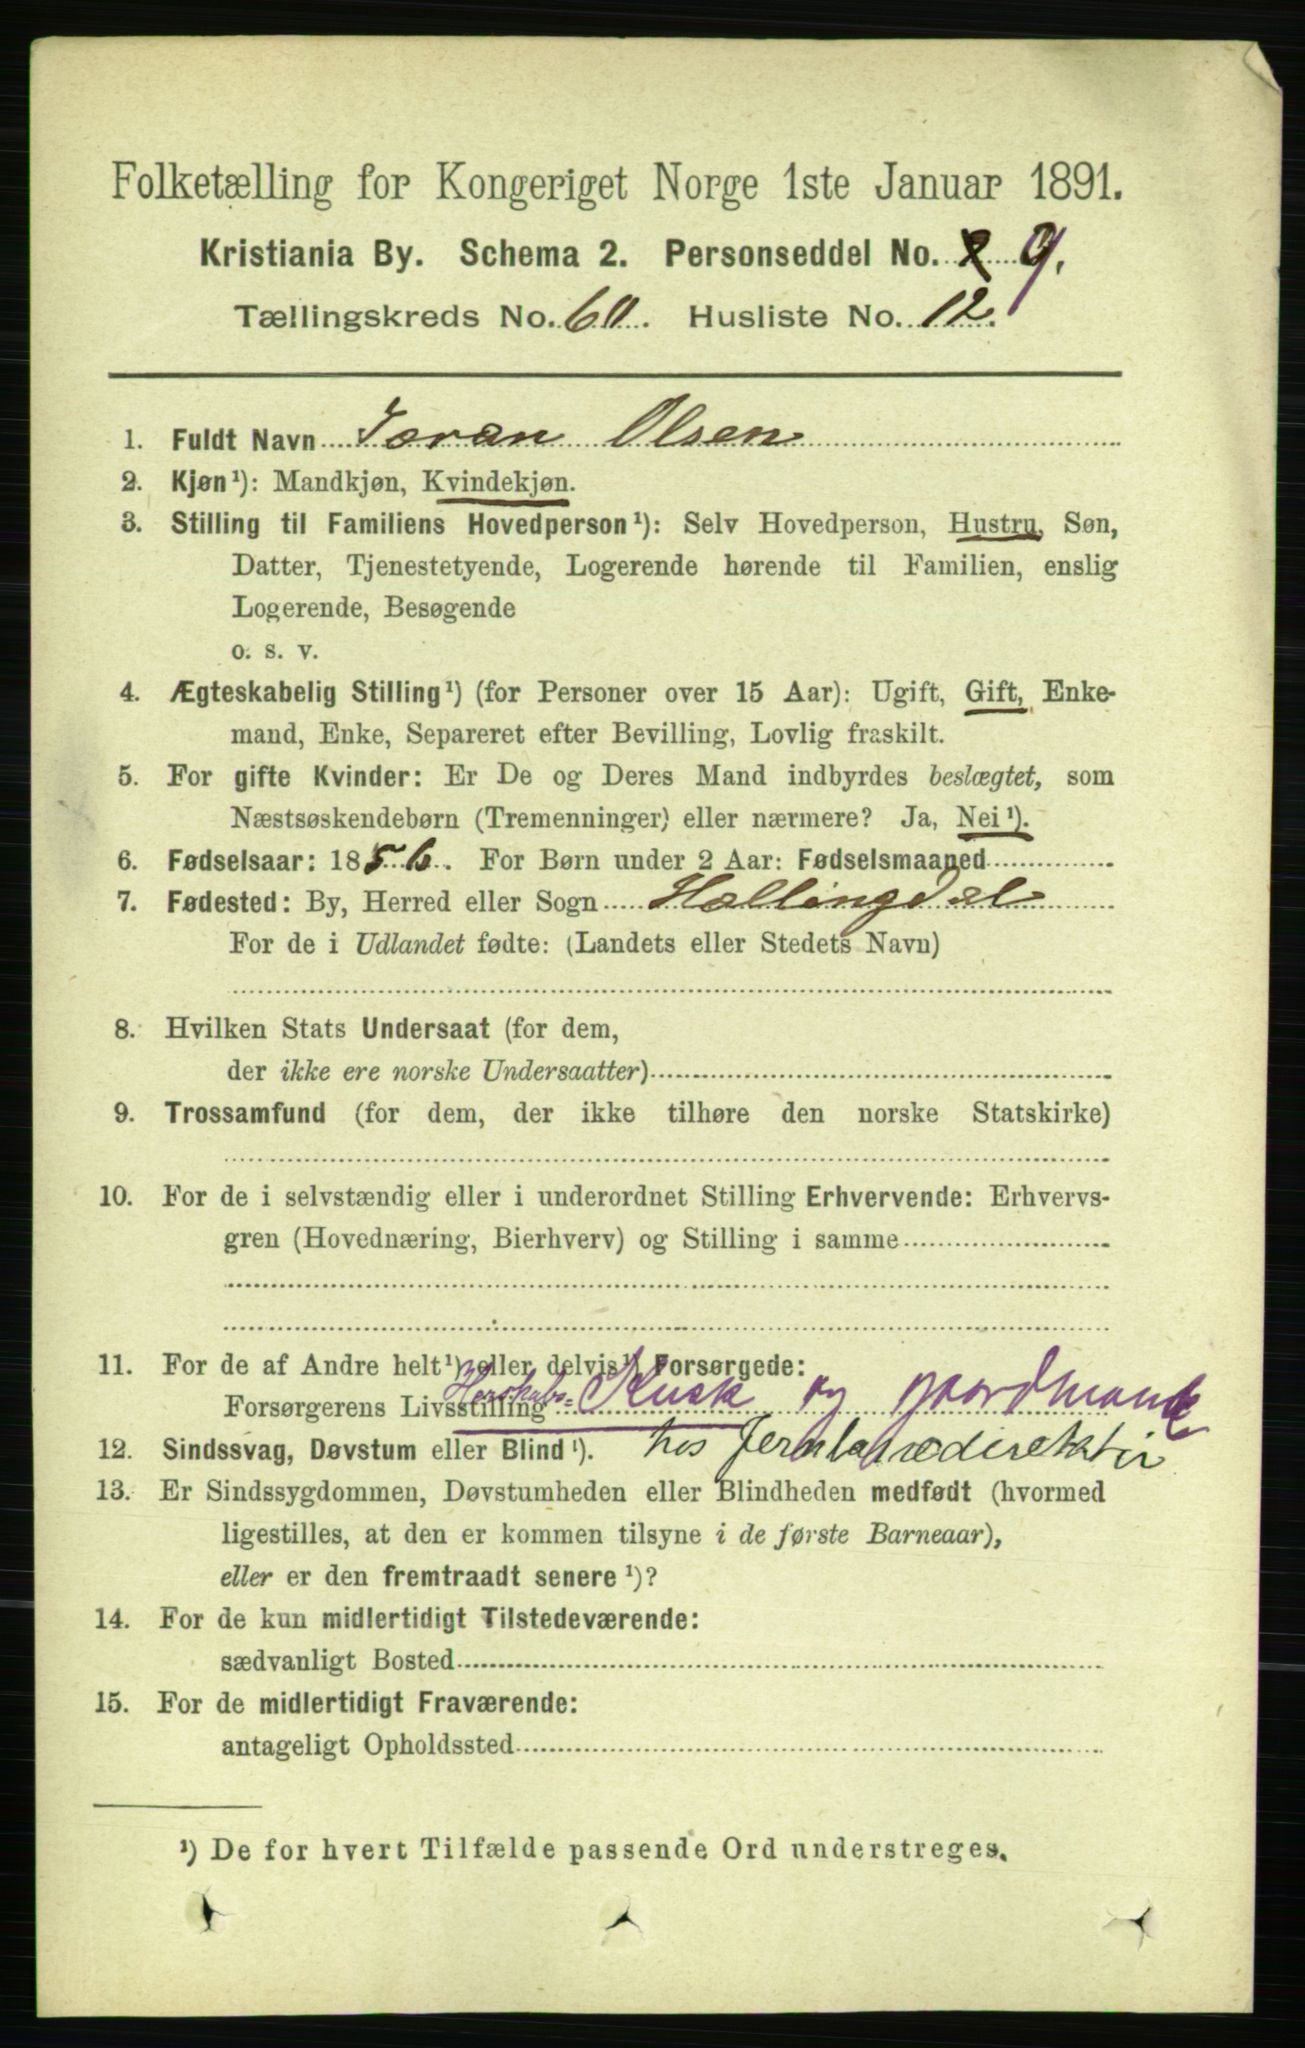 Folketælling for Kongeriget Norge 1ste Januar 1891.
Kristiania By. Schema 2. Personseddel No. 9.
Tællingskreds No. 60. Husliste No. 12.
1. Fuldt Navn Joran Olsen
2. Kjøn¹): Mandkjøn, Kvindekjøn.
3. Stilling til Familiens Hovedperson¹): Selv Hovedperson, Hustru, Søn,
Datter, Tjenestetyende, Logerende hørende til Familien, enslig
Logerende, Besøgende
o. s. v.
4. Ægteskabelig Stilling¹) (for Personer over 15 Aar): Ugift, Gift, Enke-
mand, Enke, Separeret efter Bevilling, Lovlig fraskilt.
5. For gifte Kvinder: Er De og Deres Mand indbyrdes beslægtet, som
Næstsøskendebørn (Tremenninger) eller nærmere? Ja, Nei¹).
6. Fødselsaar: 1856. For Børn under 2 Aar: Fødselsmaaned
7. Fødested: By, Herred eller Sogn Hallingdal
For de i Udlandet fødte: (Landets eller Stedets Navn)
8. Hvilken Stats Undersaat (for dem,
der ikke ere norske Undersaatter)
9. Trossamfund (for dem, der ikke tilhøre den norske Statskirke)
10. For de i selvstændig eller i underordnet Stilling Erhvervende: Erhvervs-
gren (Hovednæring, Bierhverv) og Stilling i samme
11. For de af Andre helt¹) eller delvis¹) Forsørgede:
Forsørgerens Livsstilling Herskabs= Kusk og gaardmand
12. Sindssvag, Døvstum eller Blind¹). hos
13. Er Sindssygdommen, Døvstumheden eller Blindheden medfødt (hvormed
ligestilles, at den er kommen tilsyne i de første Barneaar),
eller er den fremtraadt senere¹)?
14. For de kun midlertidigt Tilstedeværende:
sædvanligt Bosted
15. For de midlertidigt Fraværende:
antageligt Opholdssted
¹) De for hvert Tilfælde passende Ord understreges.